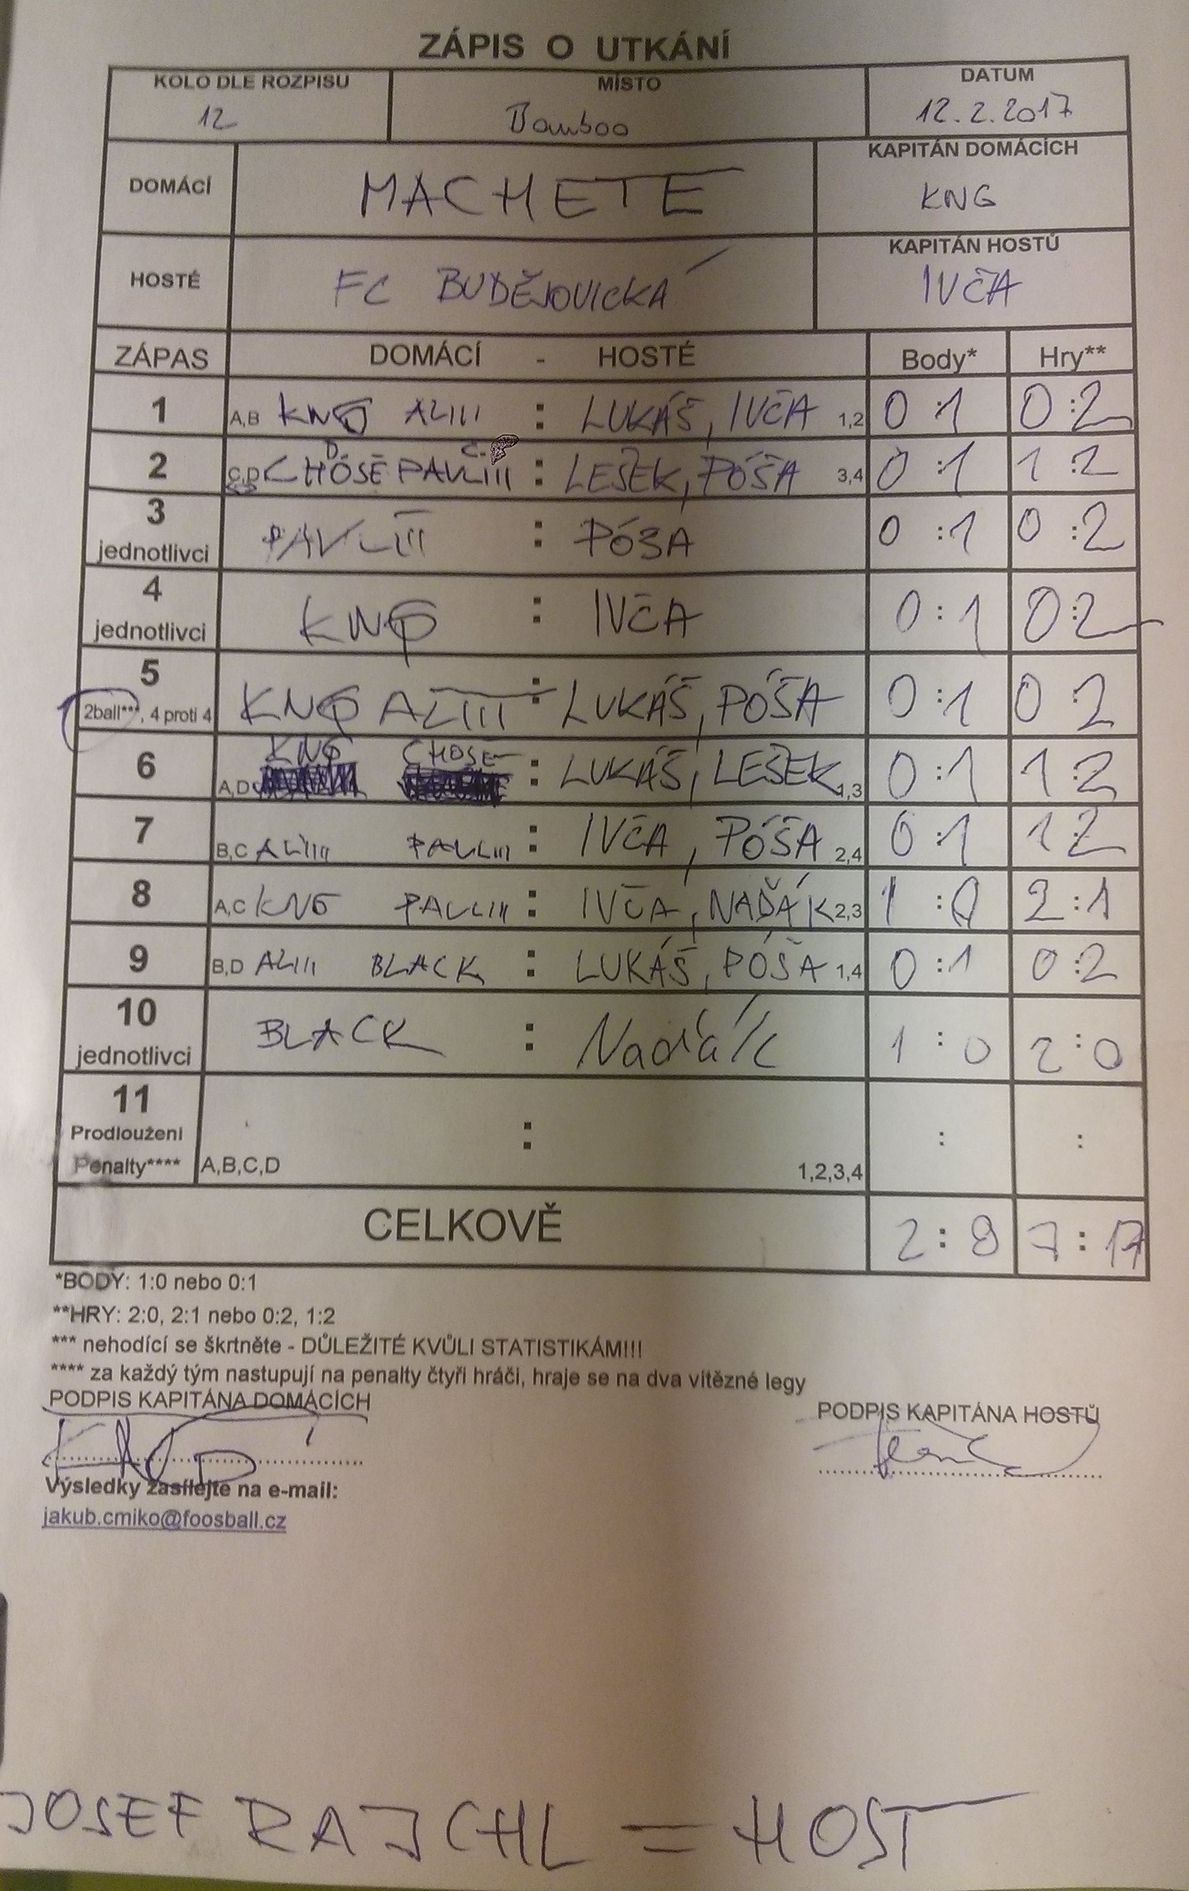 ZÁPIS O UTKÁNÍ
KOLO DLE ROZPISU MÍSTO DATUM
12 Bamboo 12.2.2017
DOMÁCÍ MACHETE KAPITÁN DOMÁCÍCH
KNG
HOSTÉ FC BUDĚJOVICKÁ KAPITÁN HOSTŮ
IVČA
ZÁPAS DOMÁCÍ - HOSTÉ Body* Hry**
1 A,B KNG ALIII : LUKÁŠ, IVČA 1,2 0:1 0:2
D C.
2 C,D CHOSÉ PAVLIII : LEŠEK, PÓŠA 3,4 0:1 1:2
3 jednotlivci PAVLIII : PÓŠA 0:1 0:2
4 jednotlivci KNG : IVČA 0:1 0:2
5 2ball***, 4 proti 4 KNG ALIII : LUKÁŠ, PÓŠA 0:1 0:2
6 A,D KNG CHOSÉ : LUKÁŠ, LEŠEK 1,3 0:1 1:2
7 B,C ALIII PAVLIII : IVČA, PÓŠA 2,4 0:1 1:2
8 A,C KNG PAVLIII : IVČA, NAĎÁK 2,3 1:0 2:1
9 B,D ALIII BLACK : LUKÁŠ, PÓŠA 1,4 0:1 0:2
10 jednotlivci BLACK : Naďák 1:0 2:0
11
Prodloužení : : :
Penalty**** A,B,C,D 1,2,3,4
CELKOVĚ 2:8 7:17
*BODY: 1:0 nebo 0:1
**HRY: 2:0, 2:1 nebo 0:2, 1:2
*** nehodící se škrtněte - DŮLEŽITÉ KVŮLI STATISTIKÁM!!!
**** za každý tým nastupují na penalty čtyři hráči, hraje se na dva vítězné legy
PODPIS KAPITÁNA DOMÁCÍCH PODPIS KAPITÁNA HOSTŮ
Výsledky zasílejte na e-mail:
jakub.cmiko@foosball.cz
JOSEF RAJCHL = HOST